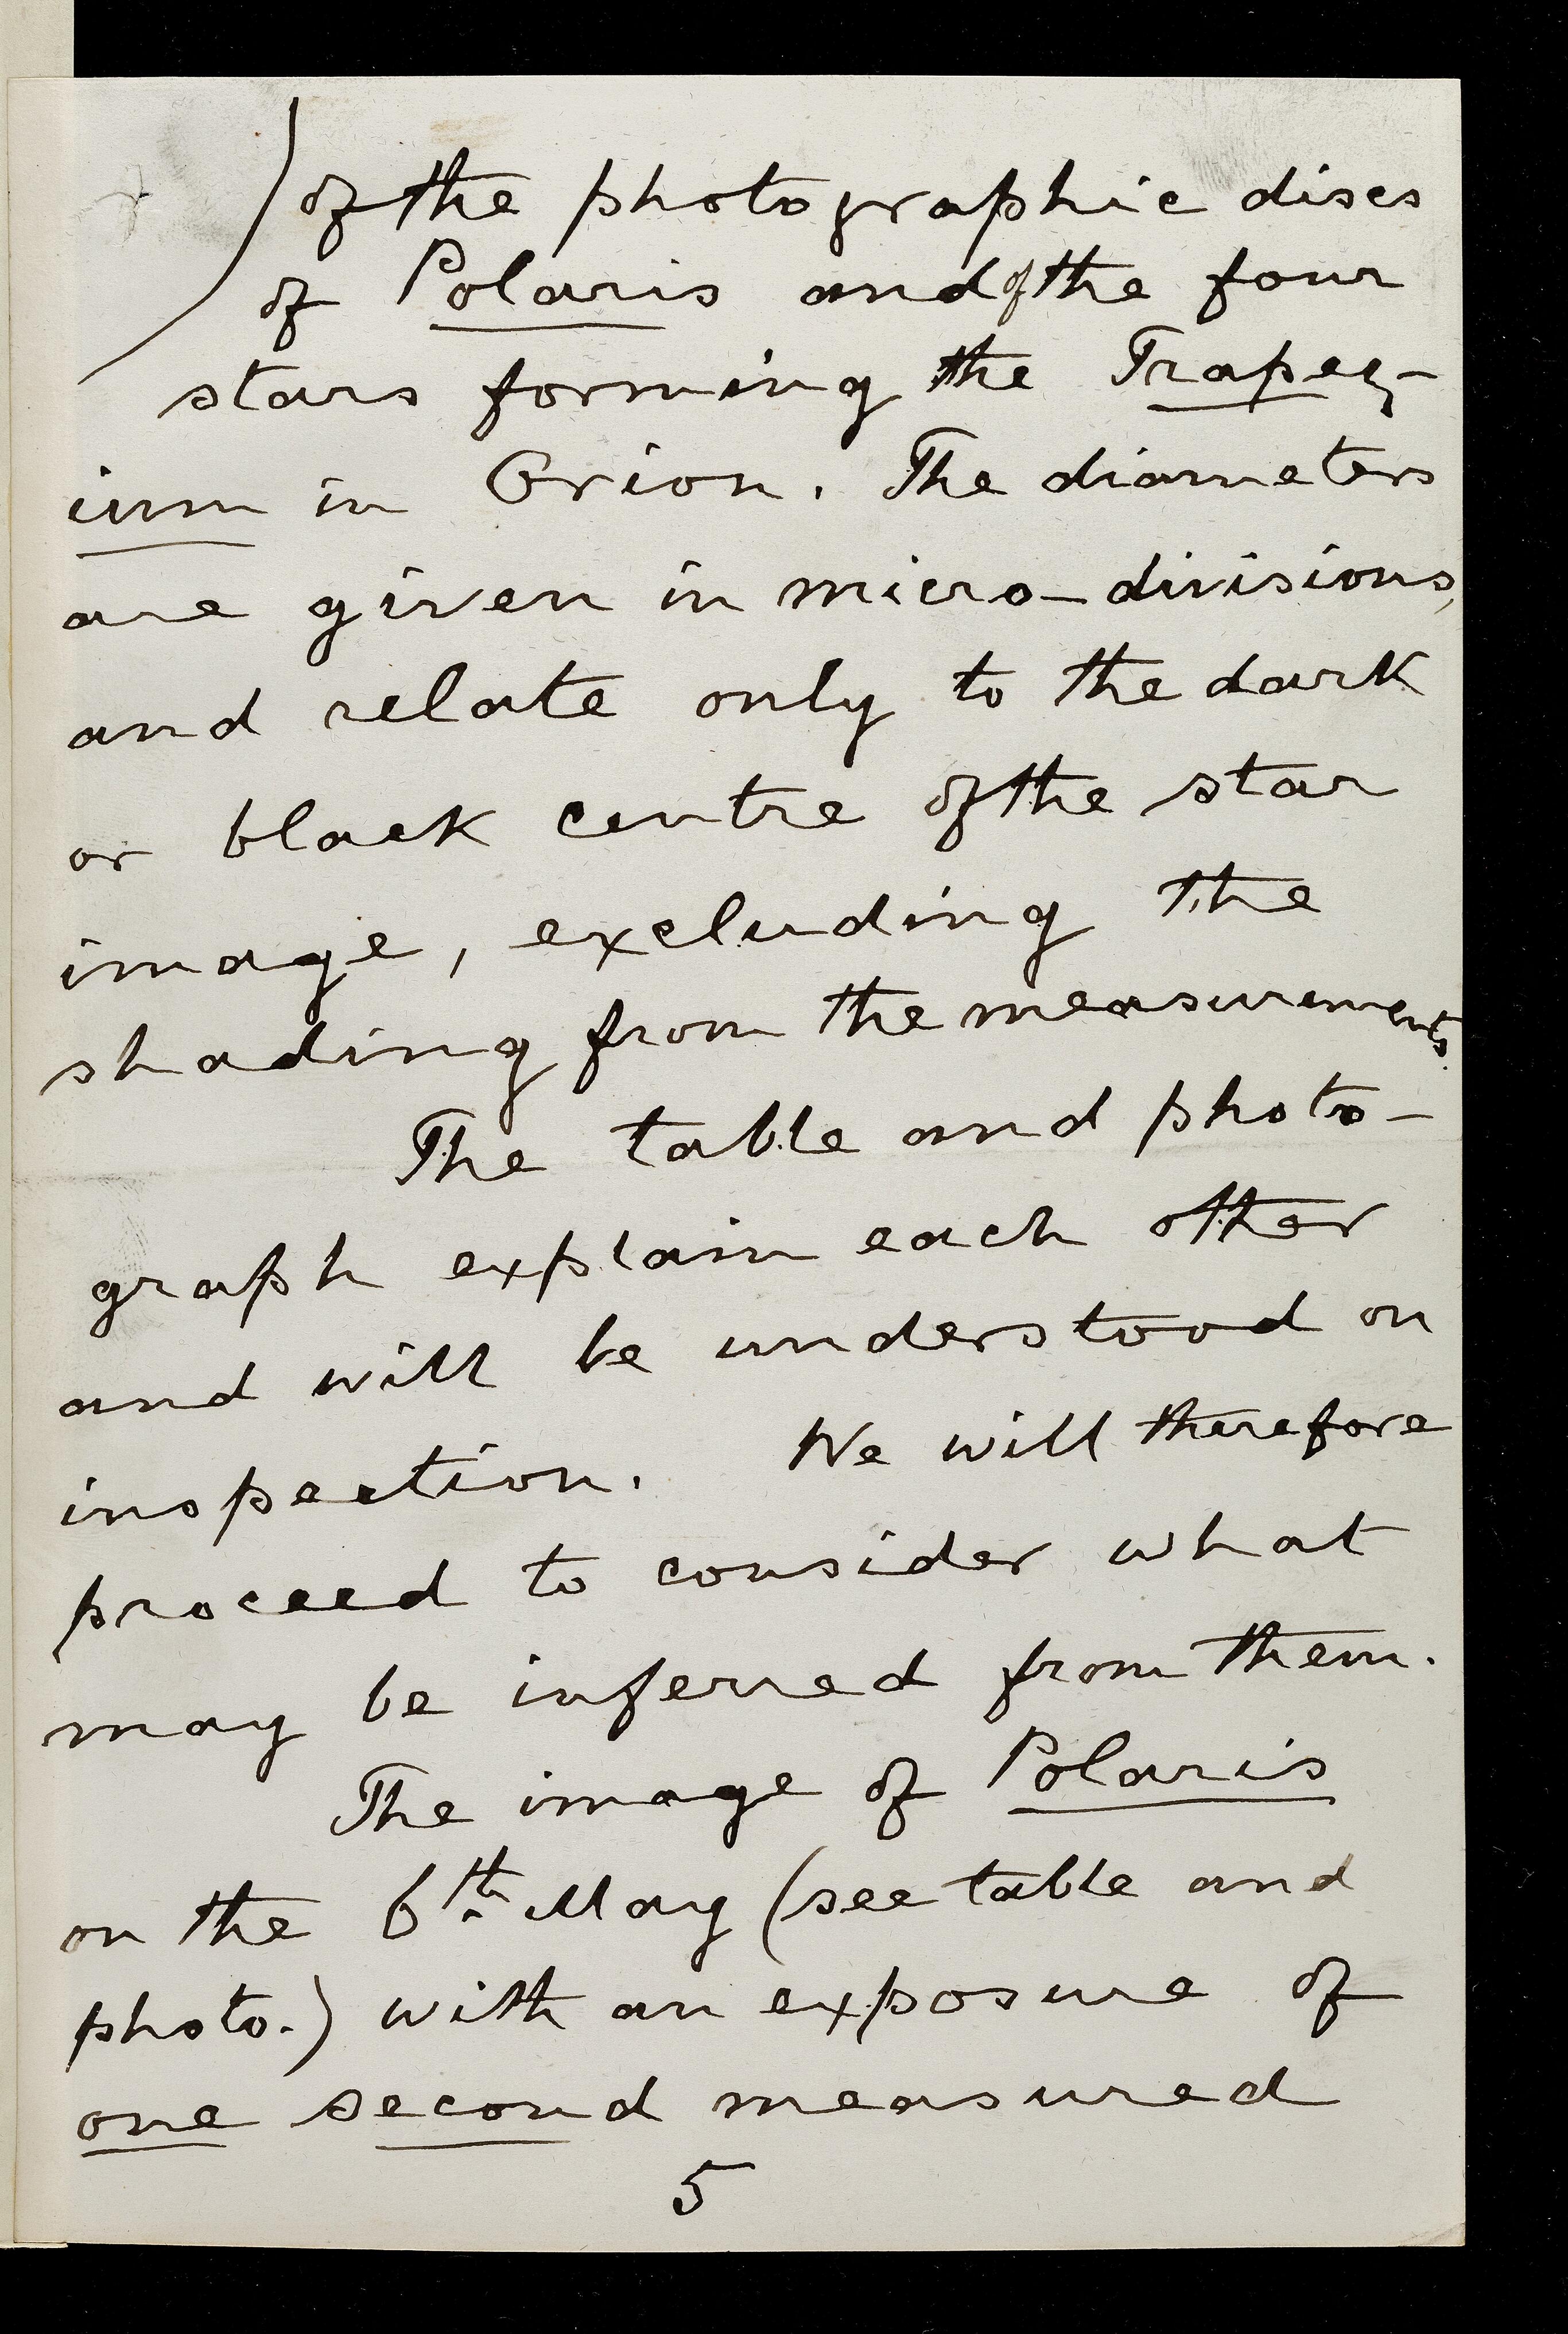 of the photographic discs
of Polaris and of the four
stars forming the Trapez-
ium in Orion. The diameters
are given in micro-divisions,
and relate only to the dark
or black centre of the star
image, excluding the
shading from the measurements.
The table and photo-
graph explain each other
and will be understood on
inspection. We will therefore
proceed to consider what
may be inferred from them.
The image of Polaris
on the 6th May (see table and
photo.) with an exposure of
one second measured
5